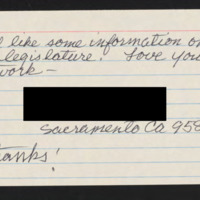 like some information on
legislature! Love you
work —
Sacramento Ca 958
thanks!